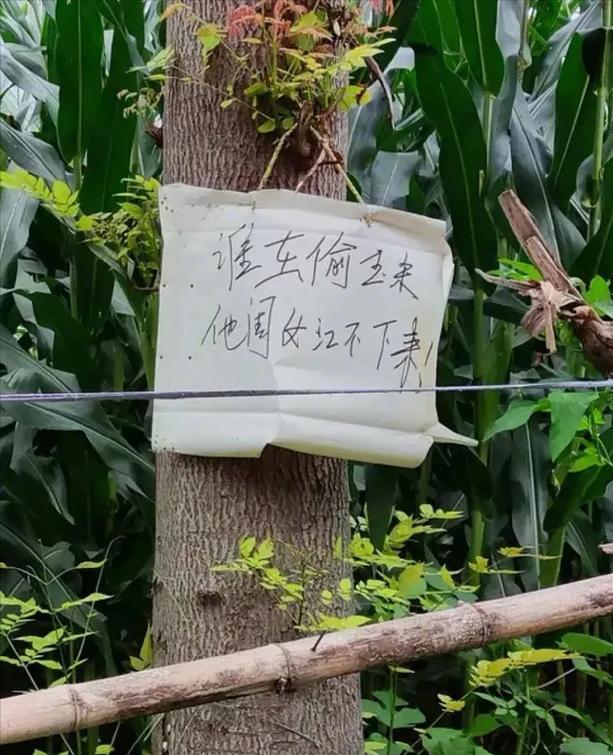 谁在偷玉米
他闺女江不下来!